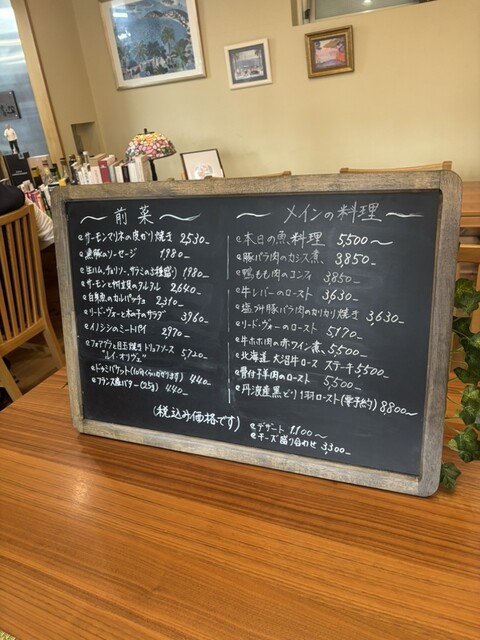 前菜
サーモンマリネの皮がり焼き 2,530-
黒豚のソーセージ 1980-
生ハム、チョリソ、サラミの3種盛り 1980-
サーモンと帆立貝のタルタル 2,640-
白身魚のカルパッチョ 2,310-
リードヴォーと木の子のサラダ 3960-
イノシシのミートパイ 2,970-
フォアグラと目玉焼きトリュフソース
"ルイ・オリヴェ" 5,720-
ドゥミバゲット(10分くらいかかります) 440-
フランス産バター(25g) 440-
(税込み価格です)
メインの料理
本日の魚料理 5,500〜
豚バラ肉のカシス煮、 3,850-
鴨もも肉のコンフィ 3,850-
牛レバーのロースト 3,630-
塩づけ豚バラ肉のカリカリ焼き 3,630-
リード・ヴォーのロースト 5,170-
牛ホホ肉の赤ワイン煮、 5,500-
北海道 大沼牛ロース ステーキ 5,500-
骨付子羊肉のロースト 5,500-
丹波産黒どり1羽ロースト(要予約) 8800〜
デザート 1,100〜
チーズ盛り合わせ 3,300-